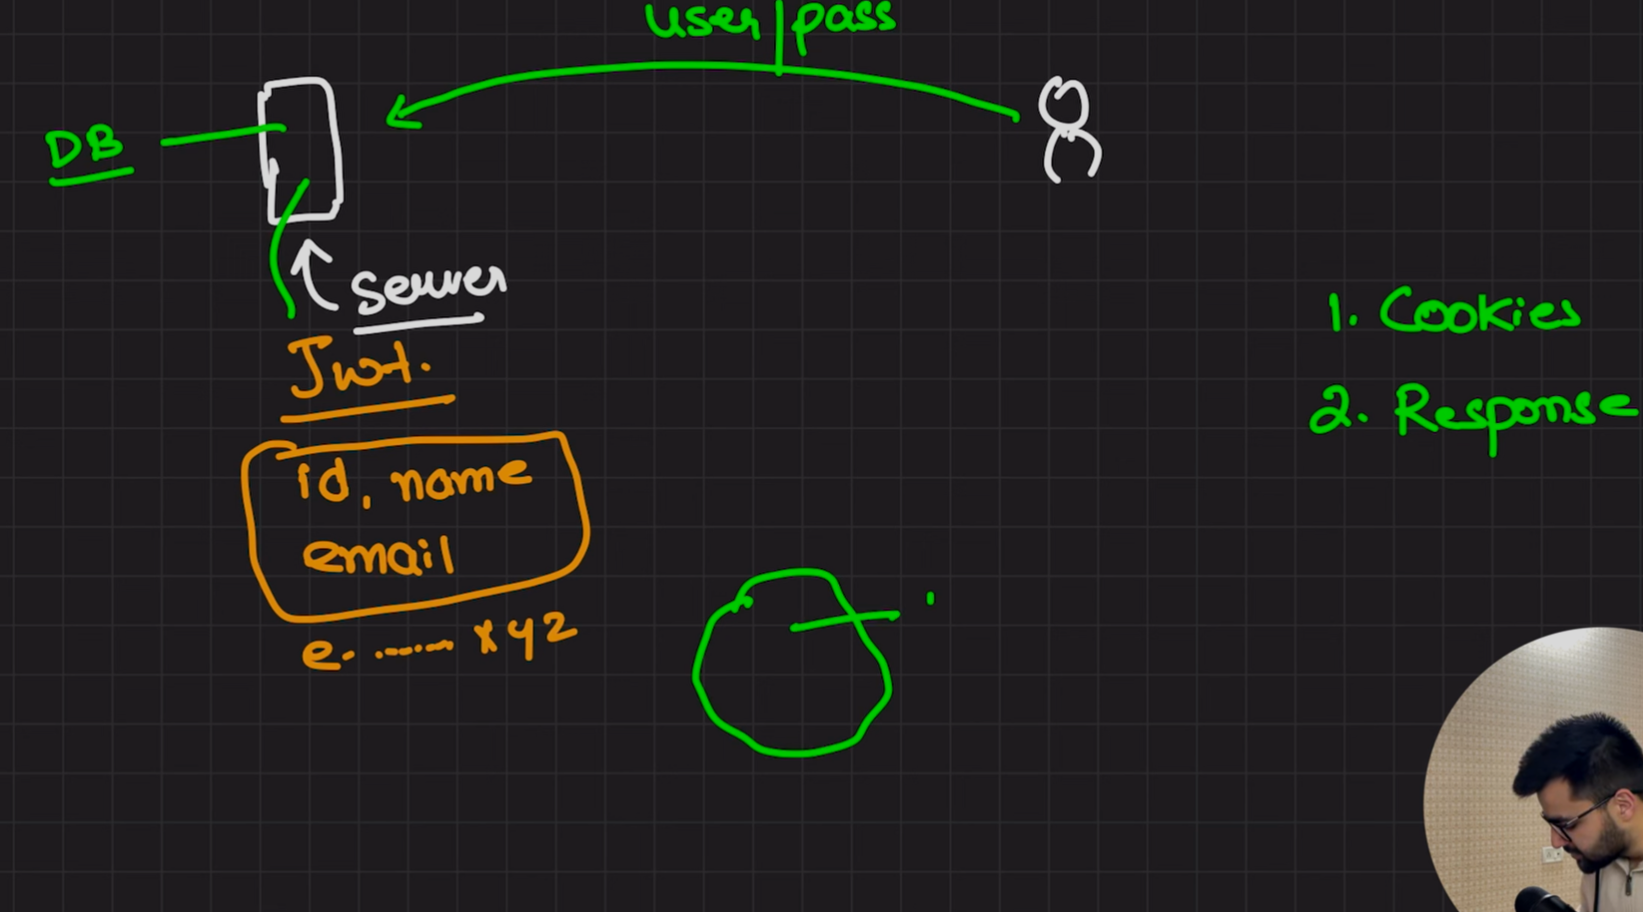 user | pass
DB
Server
Jwt.
id, name
email
e. ....... xyz
1. Cookies
2. Response